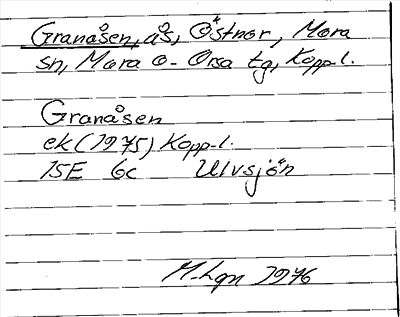 Granåsen, ås, Östnor, Mora
sn, Mora o- Orsa tg, Kopp-l.
Granåsen
ek (1975) Kopp-l.
15E 6c Ulvsjön
M-Lgn 1976